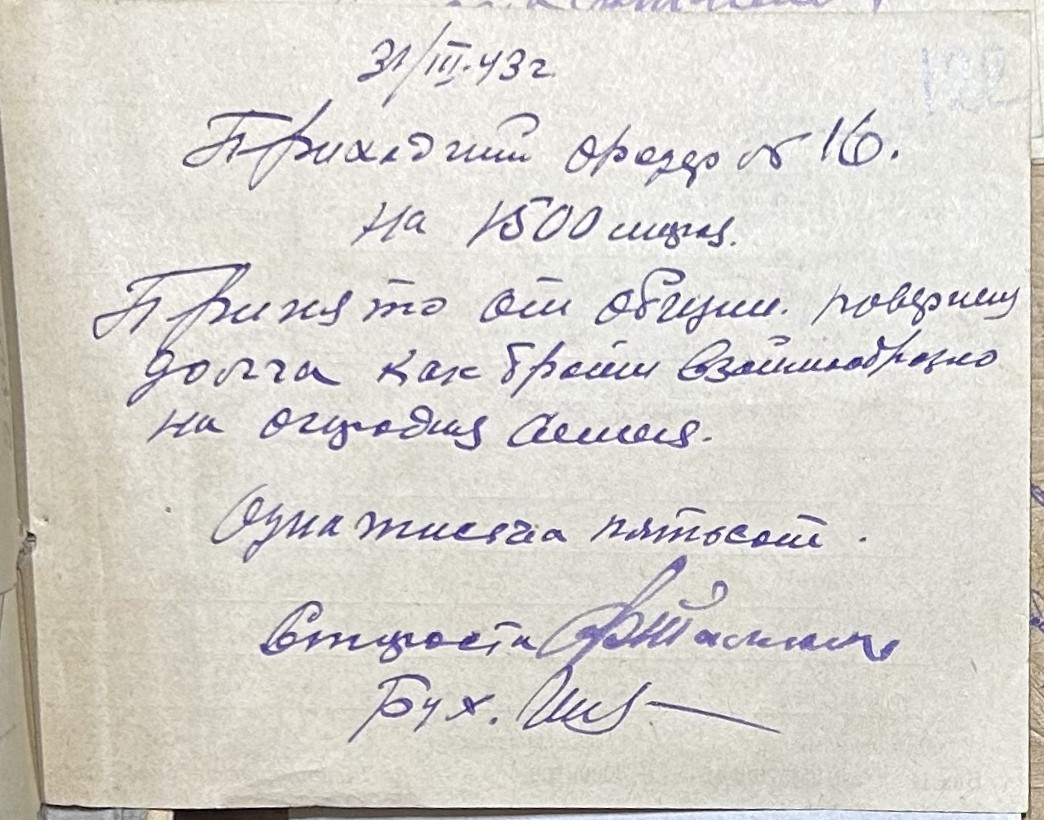 31/III-43 г.
Приходний ордер № 16.
на 1500
Принято от общин.
долга как брали взаимообразно
на огородня семена.
Одна тисеча пятьсот.
Староста
Бух.